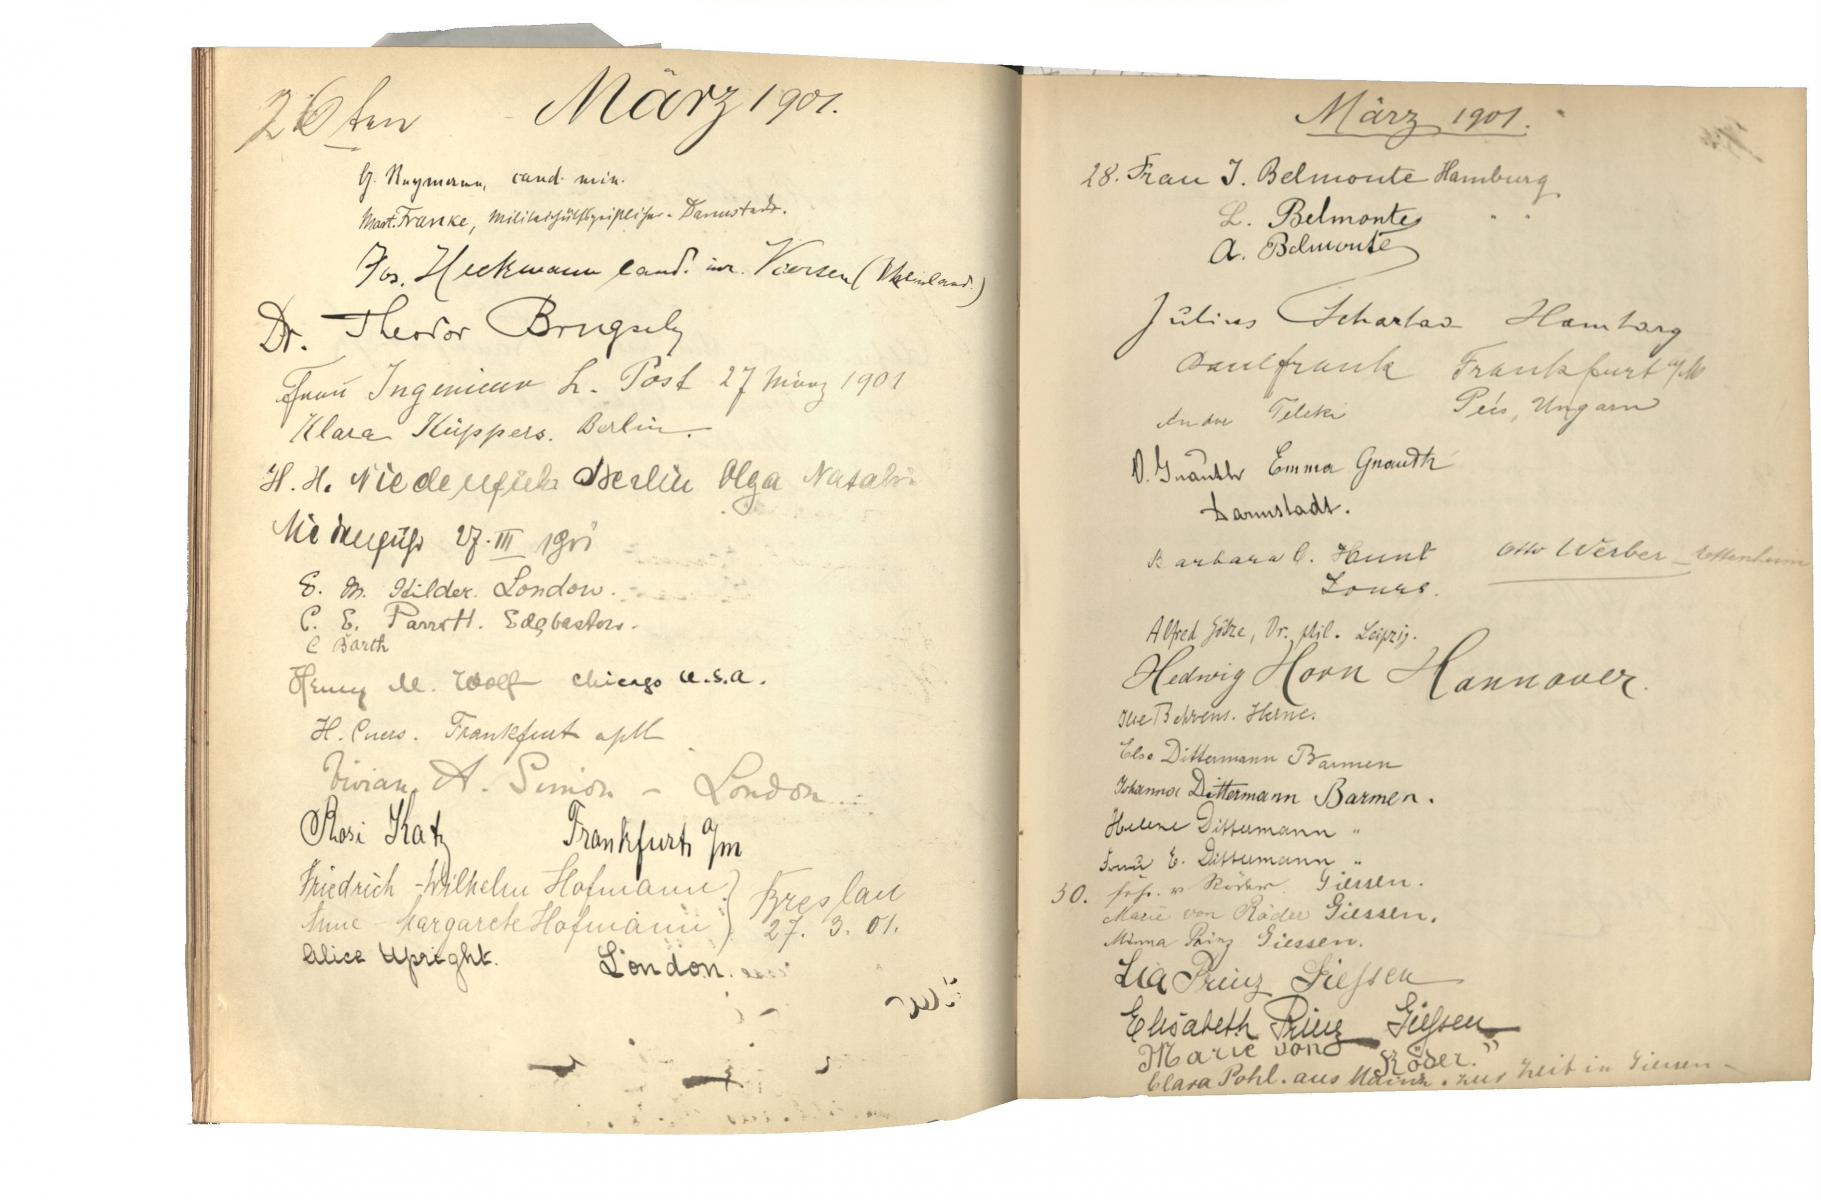 26ten März 1901.
cand. min.
Mart. Franke, Militärhülfsgeistlicher. Darmstadt.
Jos. Heckmann cand. Viersen (Rheinland.)
Dr. Theodor Brugsch
Frau Ingenieur L. Post 27 März 1901
Klara Küppers. Berlin.
H. H. Berlin Olga
27. III 1901
E. M. London.
C. E. Parrott. Edgbaston.
C Barth
Henry M. Wolf Chicago U.S.A.
H. Frankfurt a/M
Vivian A. Simon – London
Rosi Katz Frankfurt a/m
Friedrich-Wilhelm Hofmann } Breslau
Anne-Margarete Hofmann } 27. 3. 01.
Alice Upright. London.
März 1901.
28. Frau J. Belmonte Hamburg
L. Belmonte " "
A. Belmonte
Julius Hamburg
Frankfurt a/M
Teleki Pécs, Ungarn
Emma Gnauth
Darmstadt.
Barbara C. Hunt Otto Werber –
Alfred Götze, Dr. phil. Leipzig.
Hedwig Horn Hannover.
Behrens. Herne.
Else Dittermann Barmen
Johanna Dittermann Barmen.
Helene Dittermann "
Frau E. Dittermann "
30. v Röder. Giessen.
Marie von Röder Giessen.
Minna Prinz Giessen.
Lia Prinz Gießen
Elisabeth Prinz Gießen
Marie von Röder. "
Clara Pohl. aus Mainz. zur Zeit in Giessen –